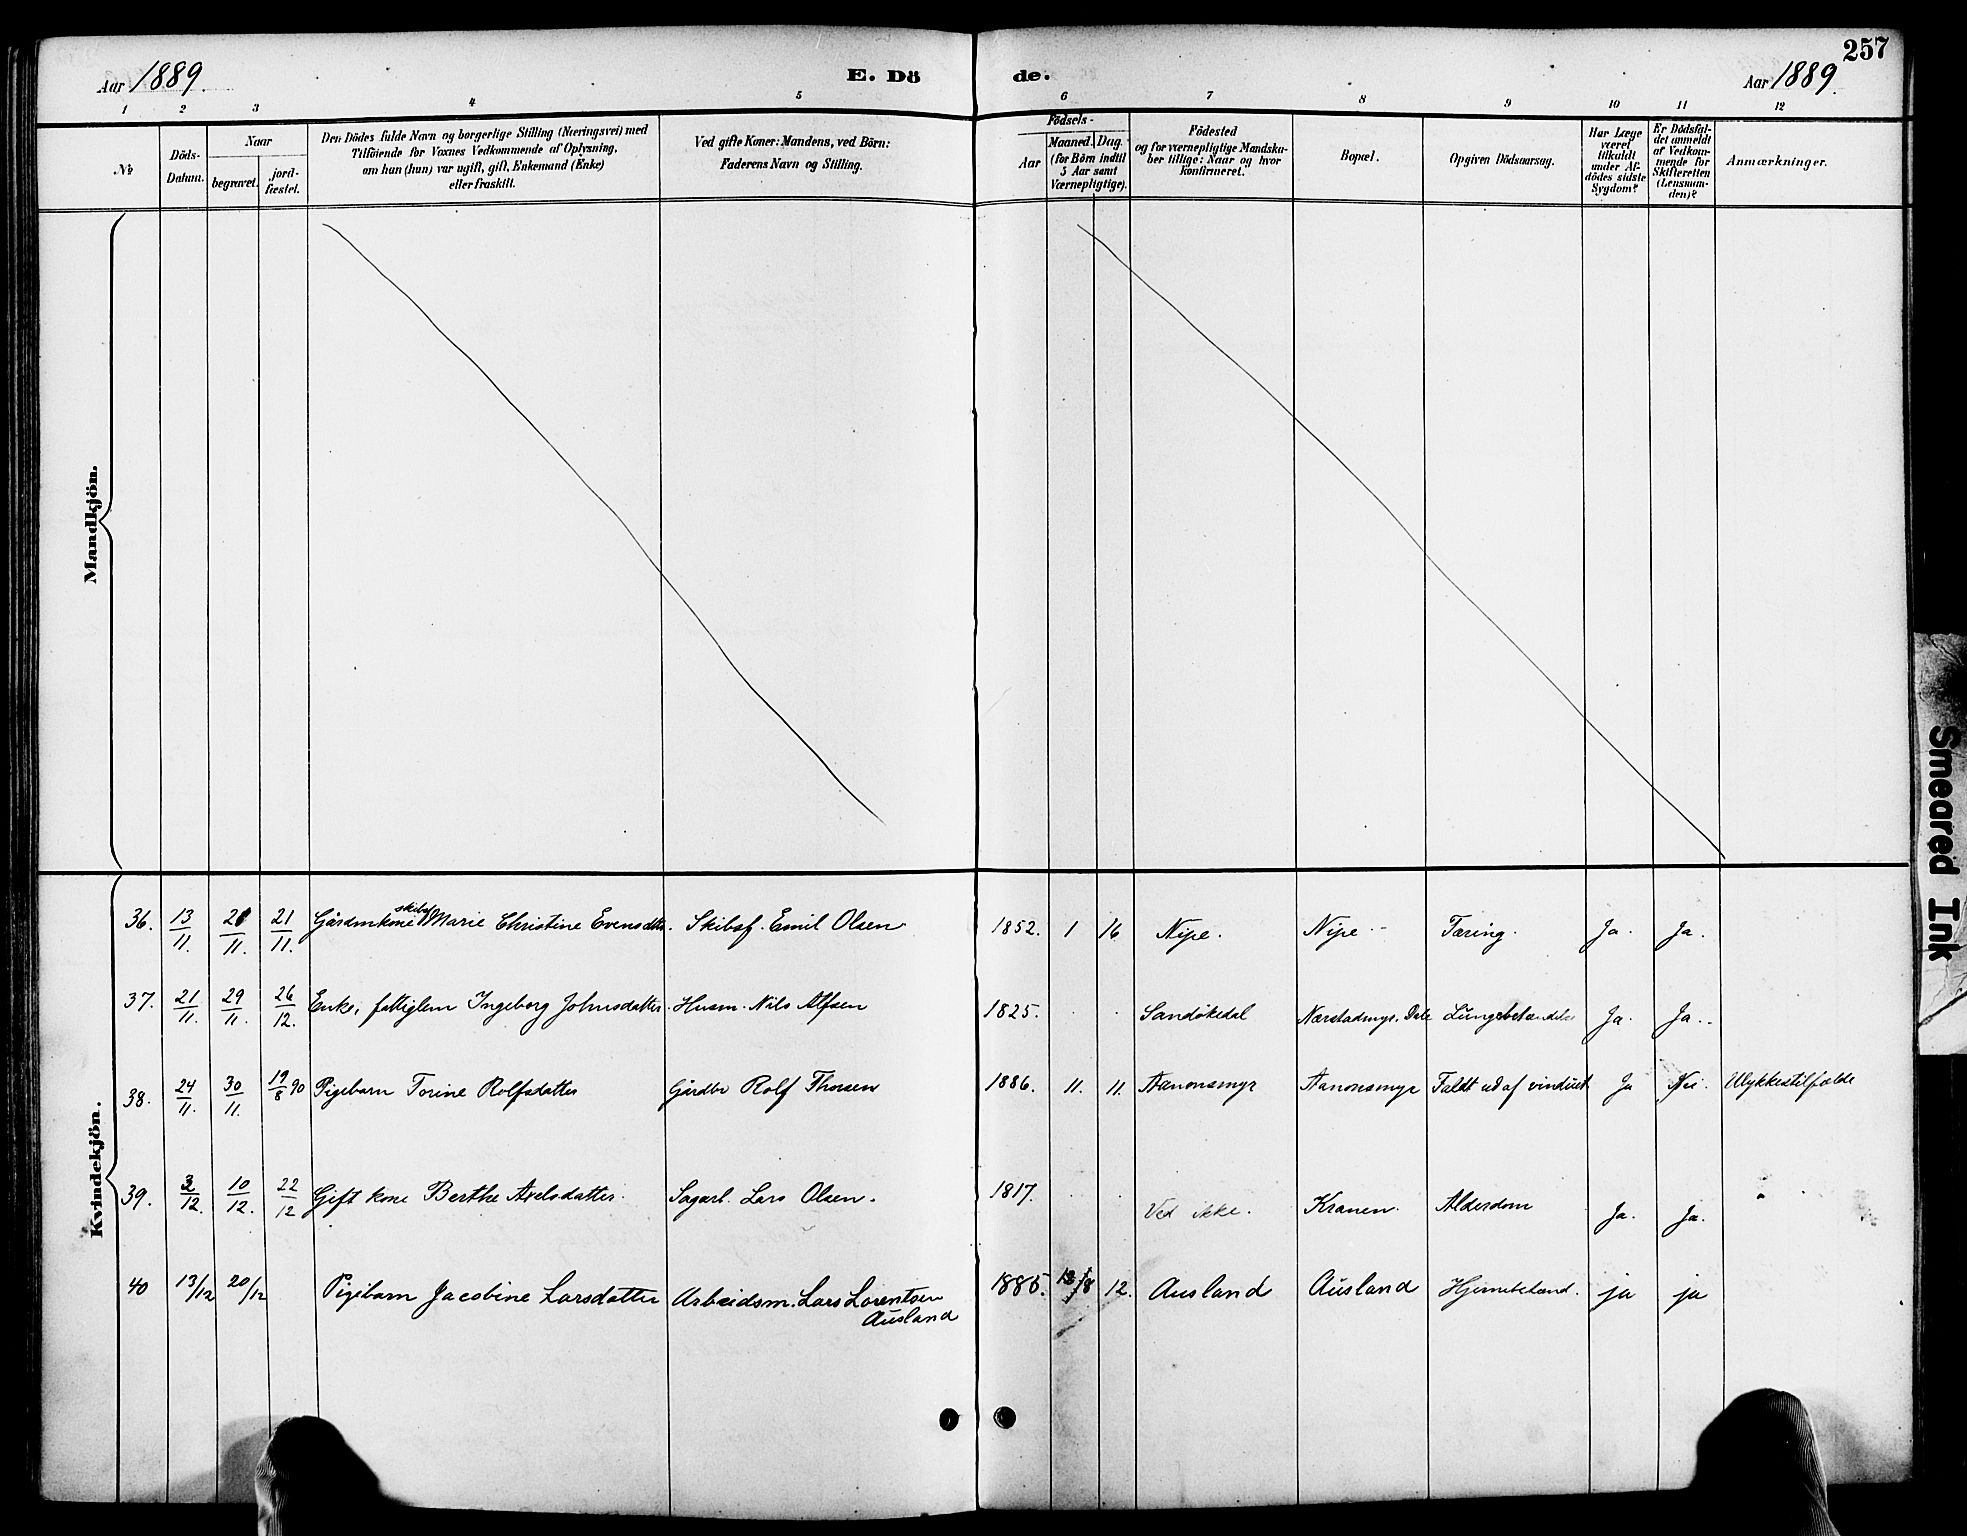 257
Aar 1889.
E. Dö de.
Aar 1889
1 2 3 4 5 6 7 8 9 10 11 12
No
Döds-Datum.
Naar
begravet.
jord-fæstet.
Den Dödes fulde Navn og borgerlige Stilling (Næringsvei) med
Tilföiende for Voxnes Vedkommende af Oplysning,
om han (hun) var ugift, gift, Enkemand (Enke)
eller fraskilt.
Ved gifte Koner: Mandens, ved Börn:
Faderens Navn og Stilling.
Födsels-
Aar
Maaned. Dag.
(for Börn indtil
5 Aar samt
Værnepligtige).
Födested
og for værnepligtige Mandska-
ber tillige: Naar og hvor
konfirmeret.
Bopæl.
Opgiven Dödsaarsag.
Har Læge
været
tilkaldt
under Af-
dödes sidste
Sygdom?
Er Dödsfal-
det anmeldt
af Vedkom-
mende for
Skifteretten
(Lensman-
den)?
Anmærkninger.
Mandkjön.
Kvindekjön.
36. 13/11. 21/11. 21/11. Gårdmkone skibsf Marie Christine Evensdtr. Skibsf. Emil Olsen 1852. 1 16 Nipe. Nipe Tæring. Ja. Ja.
37. 21/11. 29/11. 26/12. Enke, fattiglem Ingeborg Johnsdatter. Husm. Nils Alfsen 1825. Sandökedal Nærstadmyr. Dale Lungebetændelse Ja. Ja.
38. 24/11. 30/11. 19/8 90 Pigebarn Torine Rolfsdatter Gårdbr Rolf Thorsen 1886. 11. 11. Aanonsmyr Aanonsmyr Faldt ud af vinduet Ja Nei. Ulykkestilfælde
39. 3/12. 10/12. 22/12 Gift kone Berthe Axelsdatter. Sagarb. Lars Olsen. 1817. Ved ikke. Kranen. Alderdom Ja. Ja.
40 13/12 20/12 Pigebarn Jacobine Larsdatter Arbeidsm. Lars Lorentsen 1885. 12. Ausland Ausland Hjernebetænd. ja ja
Ausland
Smeared Ink